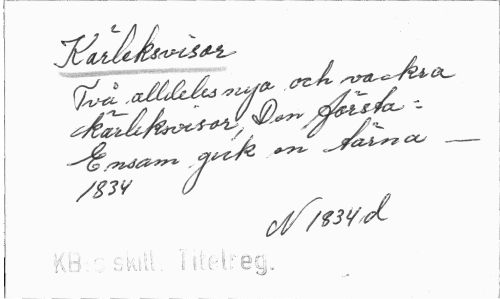 Kärleksvisor
Två alldeles nya och vackra
kärleksvisor, Den första:
Ensam gick en tärna —
1834
N 1834 d
KB:s skill. Titelreg.